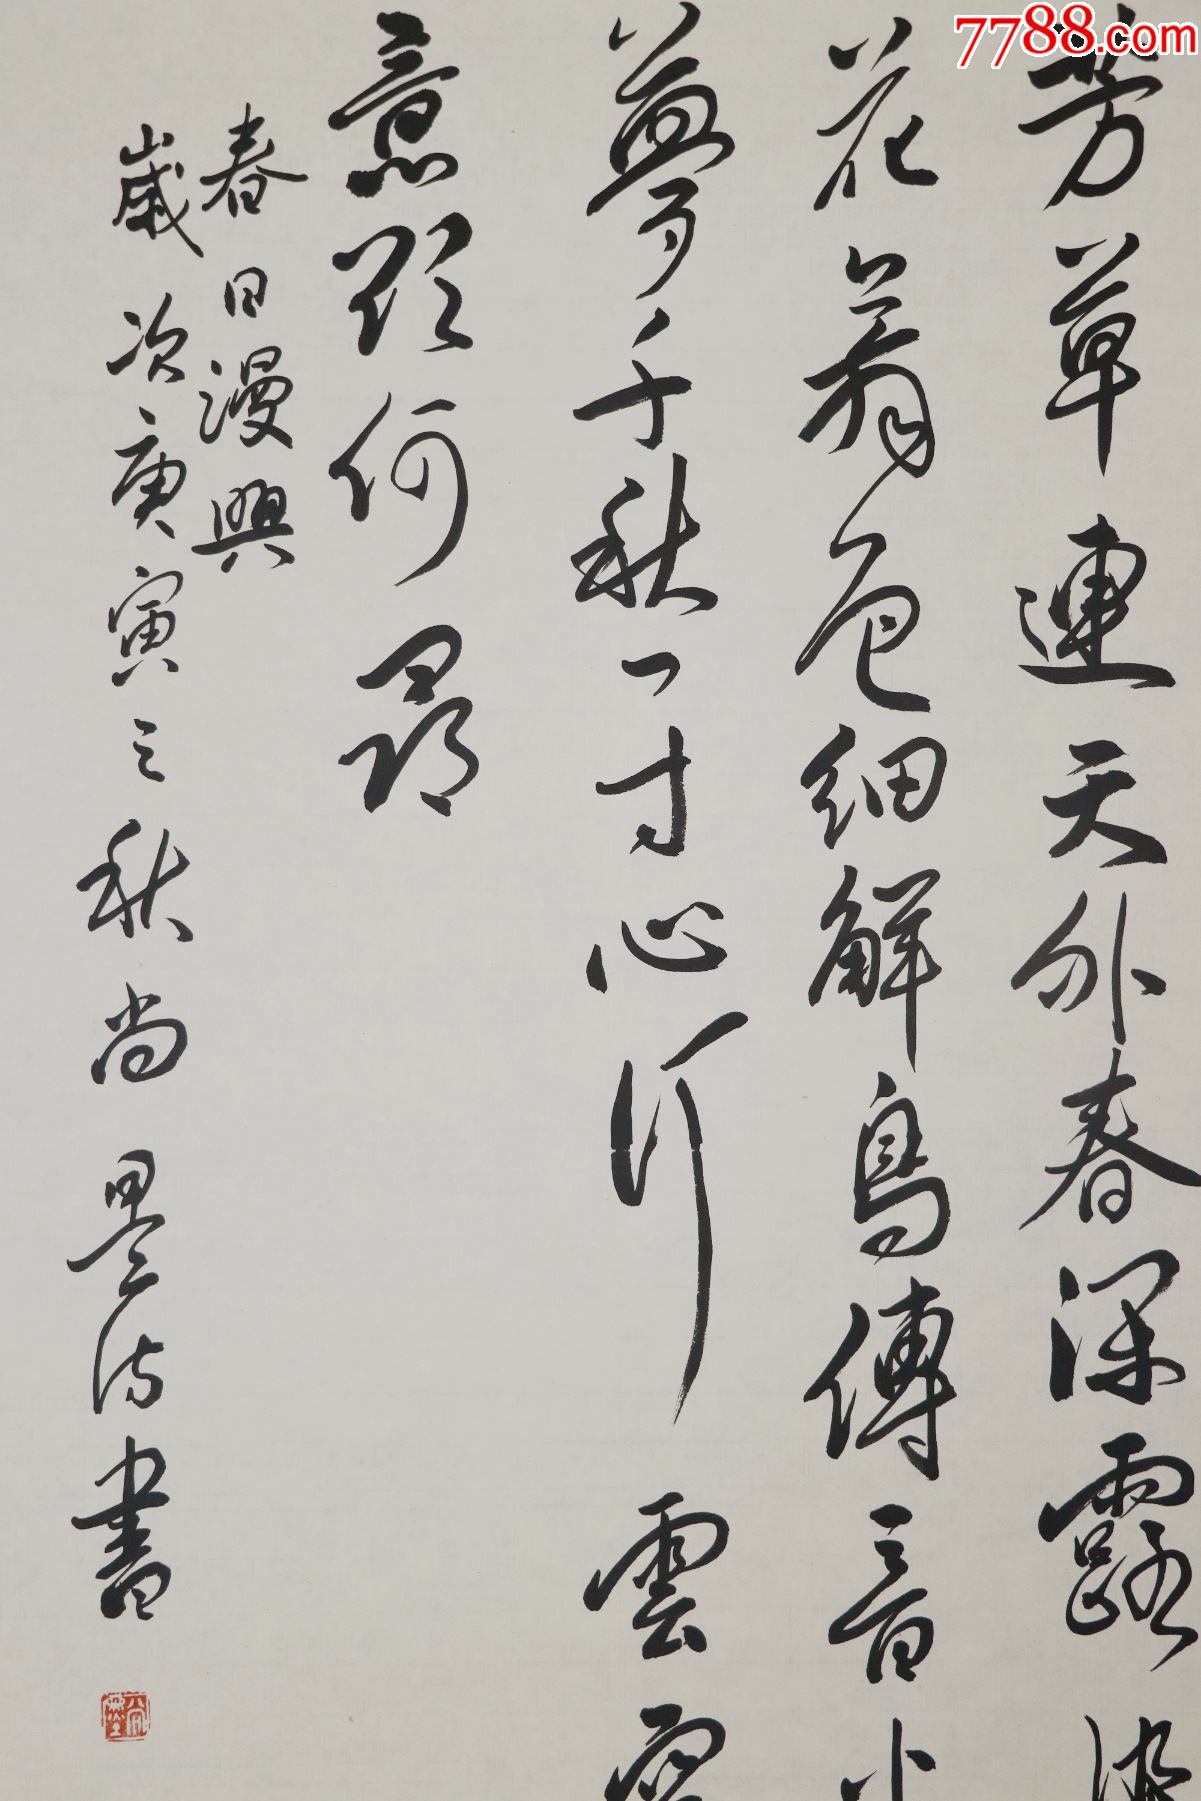 7788.com
芳草連天外春深露
花色細解鳥傳音小
夢千秋一寸心行雲
意欲何尋
春日漫興
歲次庚寅之秋尚墨書